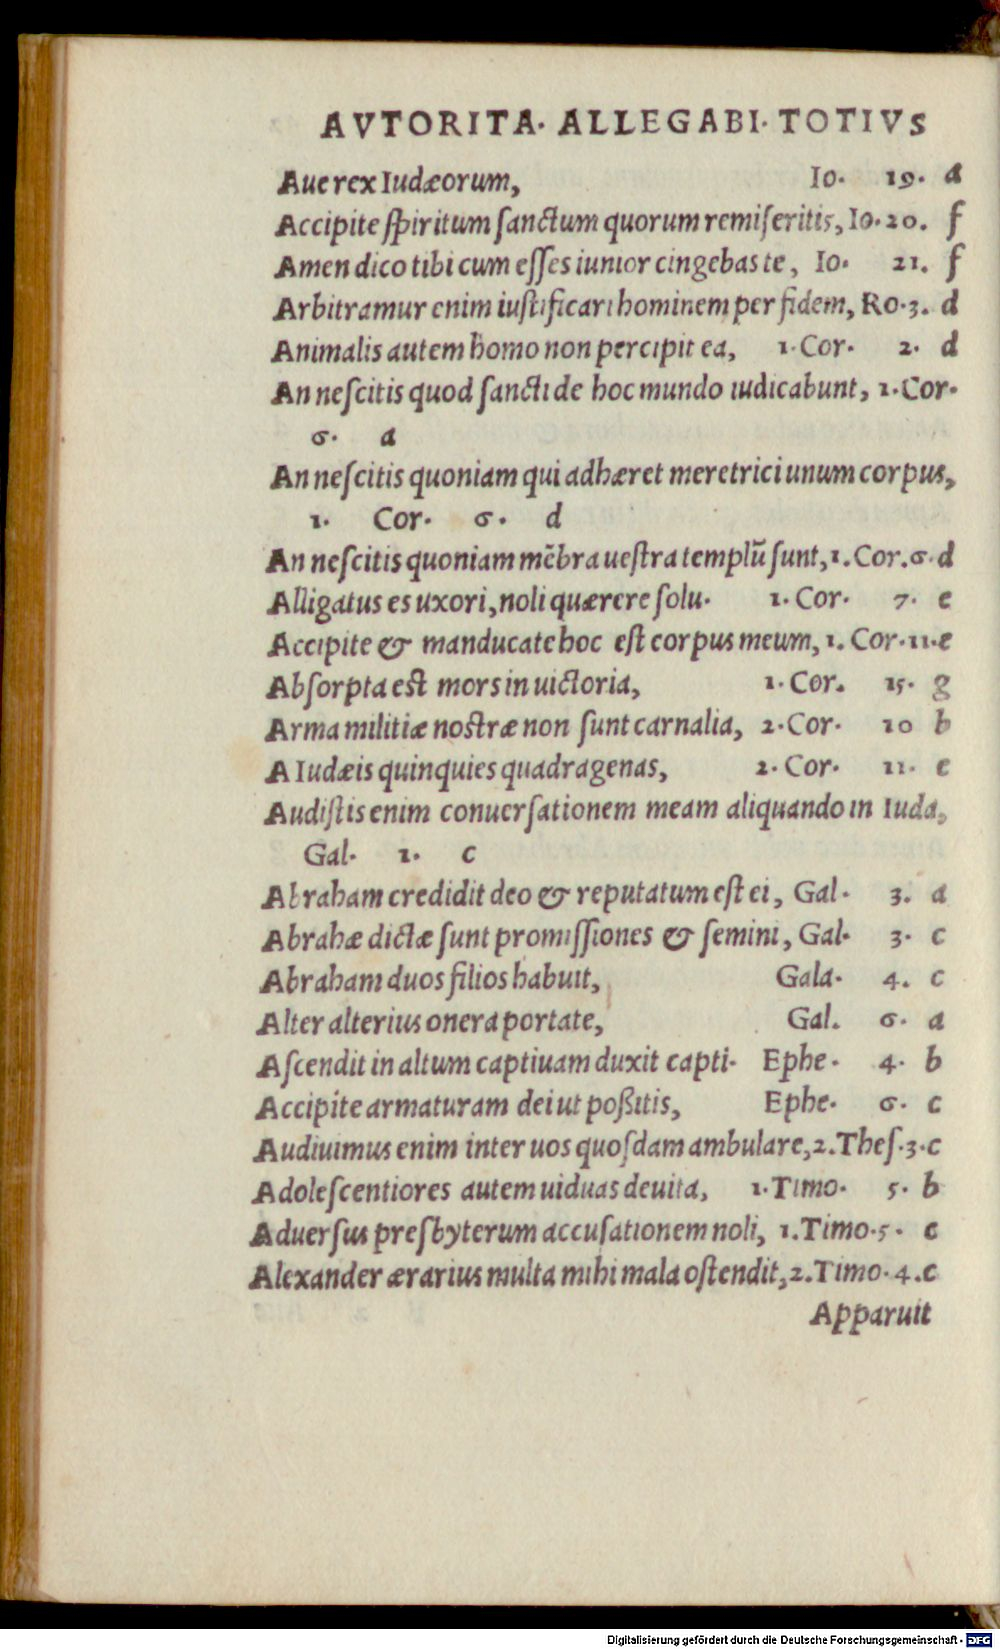 AVTORITA· ALLEGABI· TOTIVS
Aue rex Iudæorum, Io· 19· a
Accipite ſpiritum ſanctum quorum remiſeritis, Io·20. f
Amen dico tibi cum eſſes iunior cingebas te, Io· 21. f
Arbitramur enim iuſtificari hominem per fidem, Ro·3. d
Animalis autem homo non percipit ea, 1·Cor· 2· d
An neſcitis quod ſancti de hoc mundo iudicabunt, 1·Cor·
6· a
An neſcitis quoniam qui adhæret meretrici unum corpus,
1· Cor· 6· d
An neſcitis quoniam mẽbra ueſtra templũ ſunt, 1.Cor.6·d
Alligatus es uxori, noli quærere ſolu· 1·Cor· 7· e
Accipite & manducate hoc eſt corpus meum, 1. Cor·11·e
Abſorpta eſt mors in uictoria, 1·Cor. 15· g
Arma militiæ noſtræ non ſunt carnalia, 2·Cor· 10 b
A Iudæis quinquies quadragenas, 2·Cor· 11· e
Audiſtis enim conuerſationem meam aliquando in Iuda,
Gal· 1· c
Abraham credidit deo & reputatum eſt ei, Gal· 3. a
Abrahæ dictæ ſunt promiſſiones & ſemini, Gal· 3· c
Abraham duos filios habuit, Gala· 4. c
Alter alterius onera portate, Gal. 6· a
Aſcendit in altum captiuam duxit capti· Ephe· 4· b
Accipite armaturam dei ut poßitis, Ephe· 6· c
Audiuimus enim inter uos quoſdam ambulare, 2.Theſ·3·c
Adoleſcentiores autem uiduas deuita, 1·Timo· 5· b
Aduerſus preſbyterum accuſationem noli, 1.Timo·5· c
Alexander ærarius multa mihi mala oſtendit, 2.Timo·4.c
Apparuit
Digitalisierung gefördert durch die Deutsche Forschungsgemeinschaft - DFG